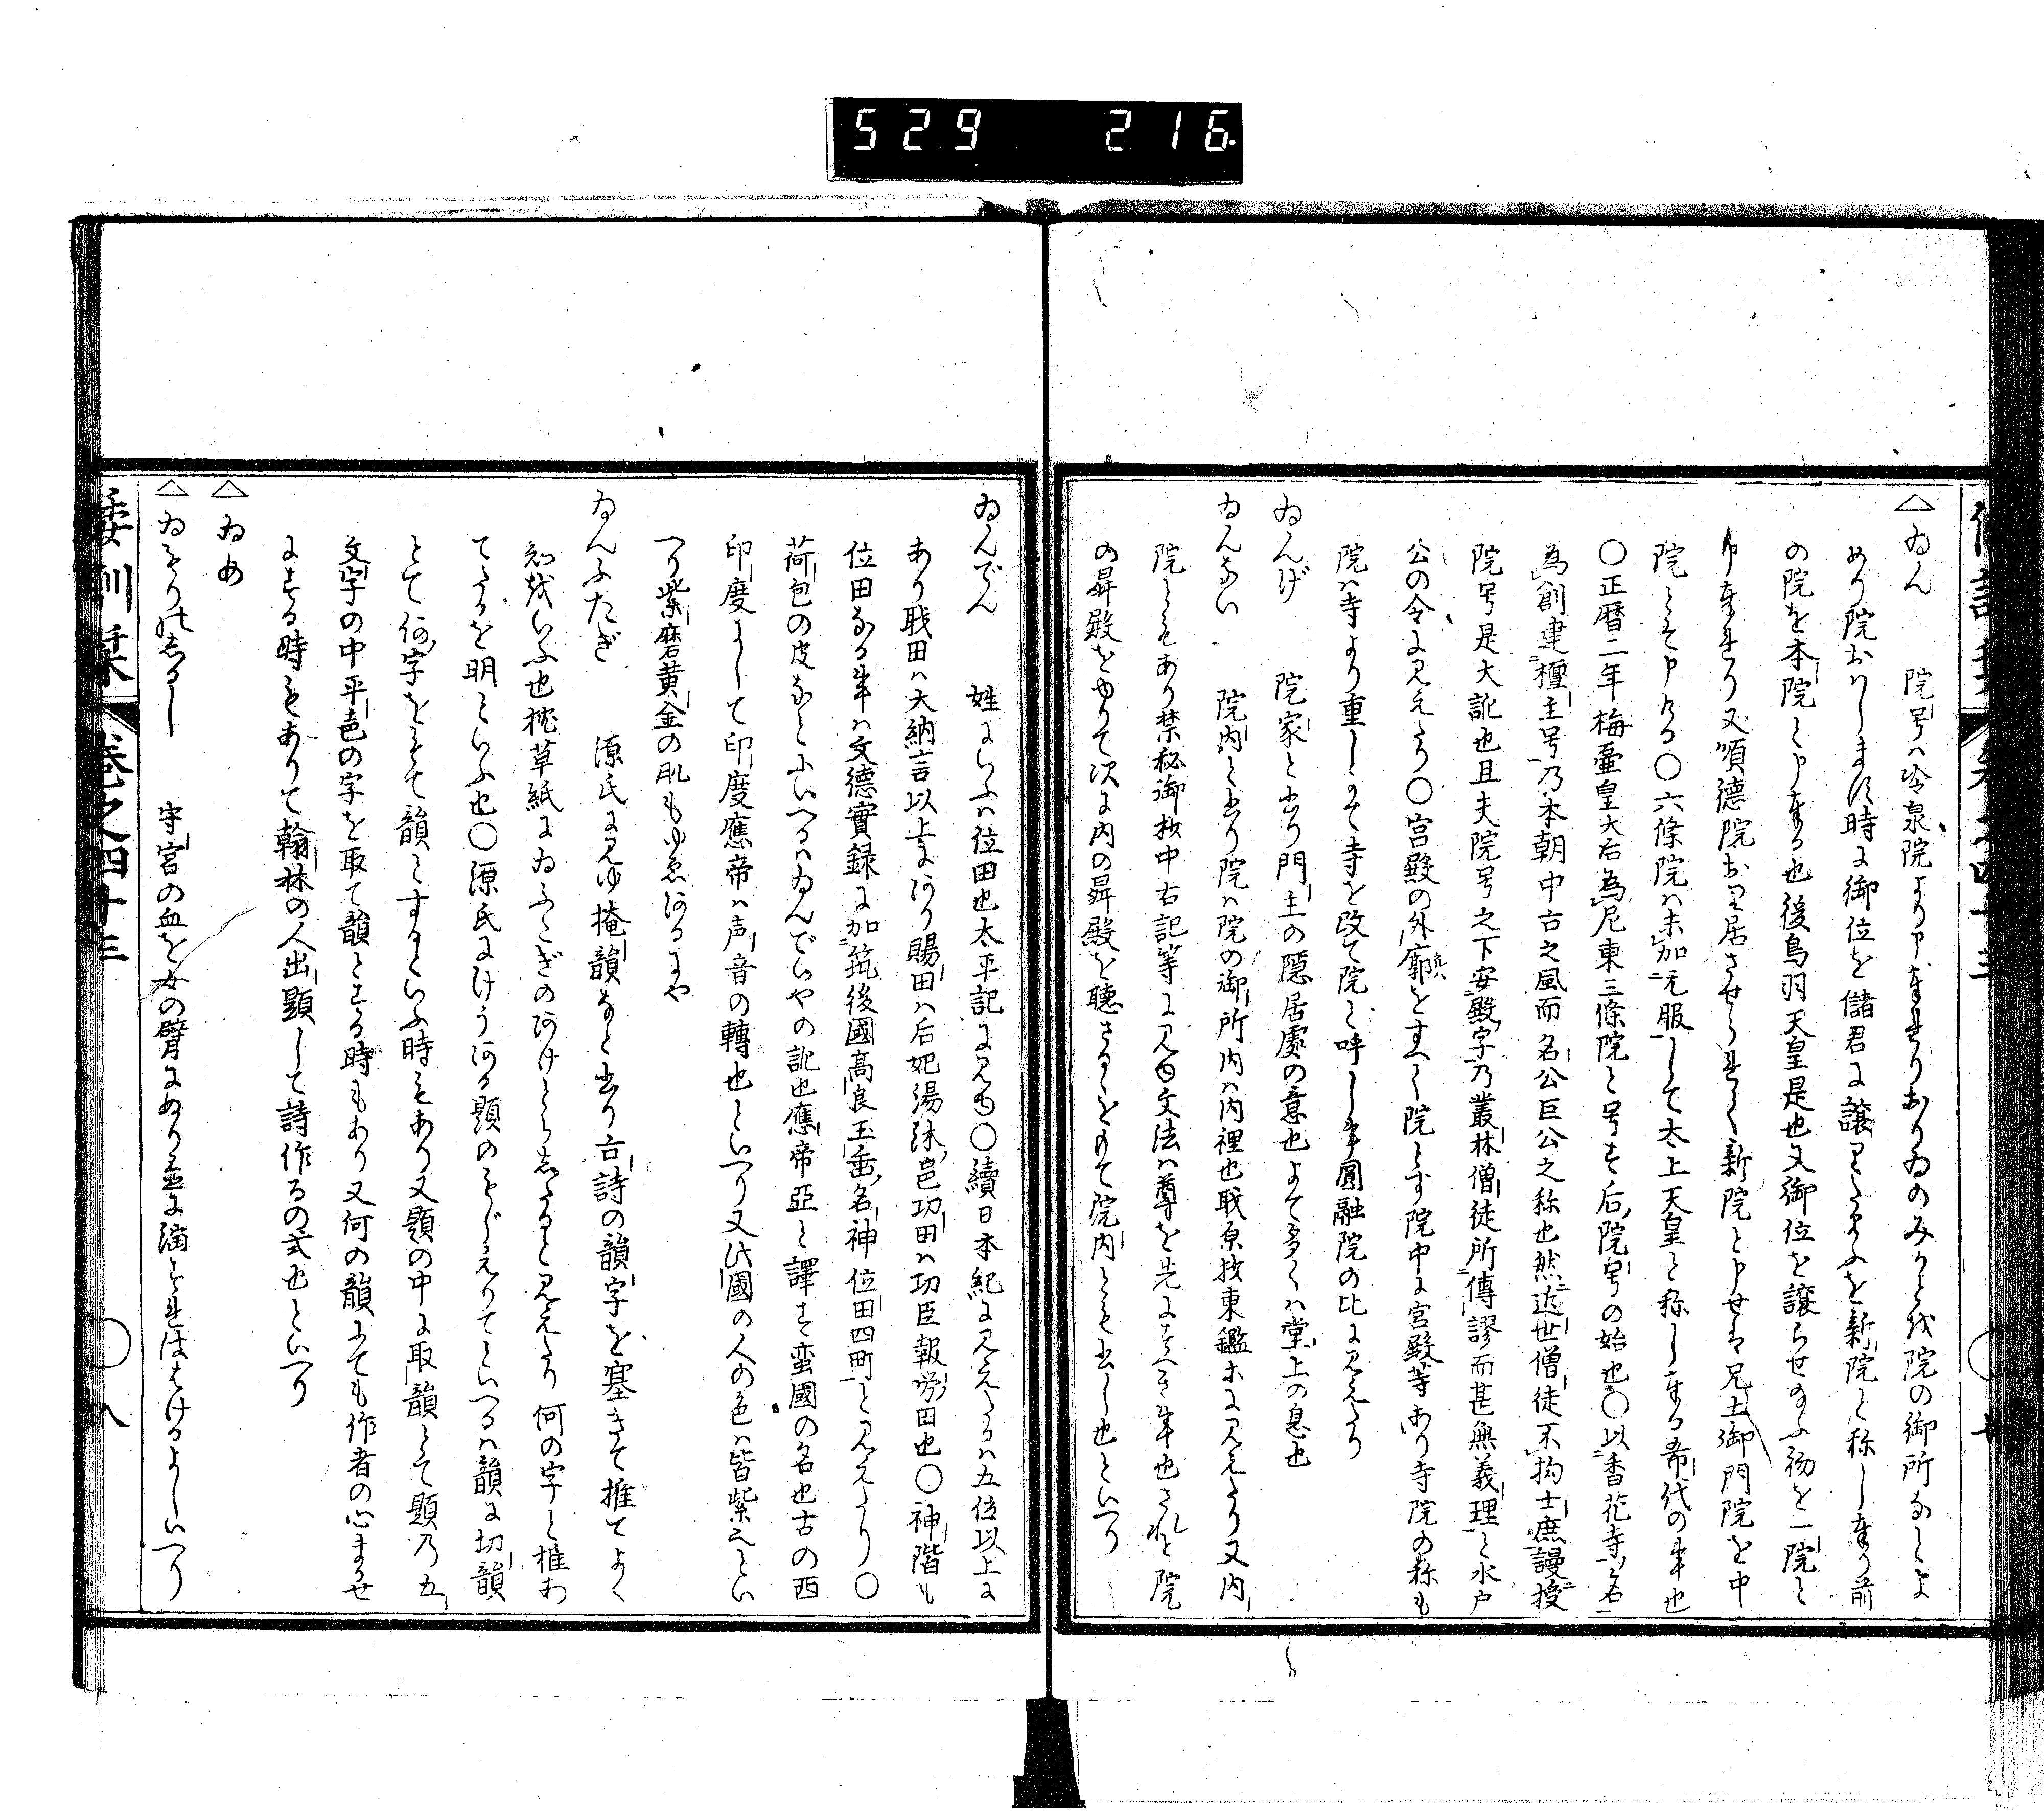 529 216.
△ゐん 院号ハ冷泉院より申奉れりおりゐのみかとを院の御所なとよ
めり院おハします時に御位を儲君に譲りたまふを新院と称し奉り前
の院を本院と申奉る也後鳥羽天皇是也又御位を譲らせ給ふ後を一院と
申奉れり又順徳院おり居させられて新院と申せは兄土御門院を中
院とそ申ける〇六條院ハ未加元服して太上天皇と称し奉る希代の事也
〇正暦二年梅壷皇太后為尼東三條院と号す后院号の始也〇以香花寺名
為創建檀主号乃本朝中古之風而名公巨公之称也然近世僧徒不拘士庶謾授
院号是大訛也且夫院号之下安殿字乃叢林僧徒所傳謬而甚無義理と水戸
公の令に見えたり〇宮殿の外廊をすへて院とす院中に宮殿等あり寺院の称も
院ハ寺より重しそて寺を改て院と呼し事圓融院の比に見えたり
ゐんげ 院家と書り門主の隠居處の意也よて多くハ堂上の息也
ゐんない 院内と書り院ハ院の御所内ハ内裡也職原抄東鑑等に見えたり又内
院ともあり禁秘御抄中右記等に見ゆ文法ハ尊を先にすへき事也されと院
の昇殿をゆりて次に内の昇殿を聴さるゝをもて院内とも書し也といへり
ゐんでん 姓にいふハ位田也太平記に見ゆ〇續日本紀に見えたるハ五位以上に
あり職田ハ大納言以上にあり賜田ハ后妃湯沐邑功田ハ功臣報労田也〇神階も
位田ある事ハ文徳實録に加筑後國高良玉垂名神位田四町と見えたり〇
荷包の皮なとにいへるハゐんでいやの訛也應帝亞と譯す蛮國の名也古の西
印度にして印度應帝ハ声音の轉也といへり又此國の人の色ハ皆紫也とい
へり紫磨黄金の肌もゆゑあるにや
ゐんふたぎ 源氏に見ゆ掩韻なと書り古詩の韻字を塞きて推てよく
知をいふ也枕草紙にゐふたぎのあけとらしたると見えたり何の字と推あ
てたるを明といふ也〇源氏にけうある題のもじえりてといへるハ韻に切韻
とて何字をもて韻とするといふ時もあり又題の中に取韻とて題乃五
文字の中平声の字を取て韻とする時もあり又何の韻にても作者の心まかせ
にする時もありて翰林の人出題して詩作るの式也といへり
△ゐめ
△ゐもりのしるし 守宮の血を女の臂にぬり並に溺すれははけるよしいへり
倭訓栞 巻之四十三 〇八